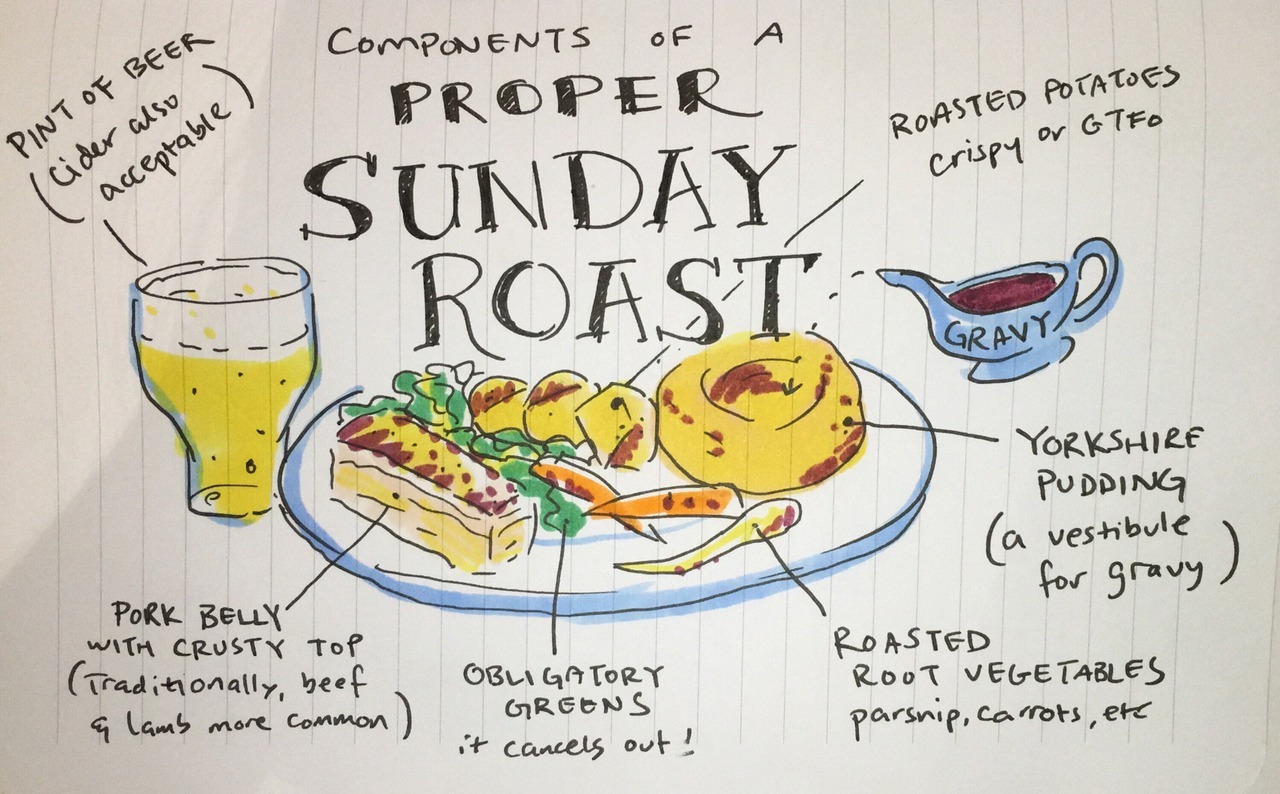 COMPONENTS OF A
PROPER
SUNDAY
ROAST
PINT OF BEER
(Cider also
acceptable)
ROASTED POTATOES
crispy or GTFO
GRAVY
YORKSHIRE
PUDDING
(a vestibule
for gravy)
PORK BELLY
WITH CRUSTY TOP
(Traditionally, beef
& lamb more common)
OBLIGATORY
GREENS
it cancels out!
ROASTED
ROOT VEGETABLES
parsnip, carrots, etc